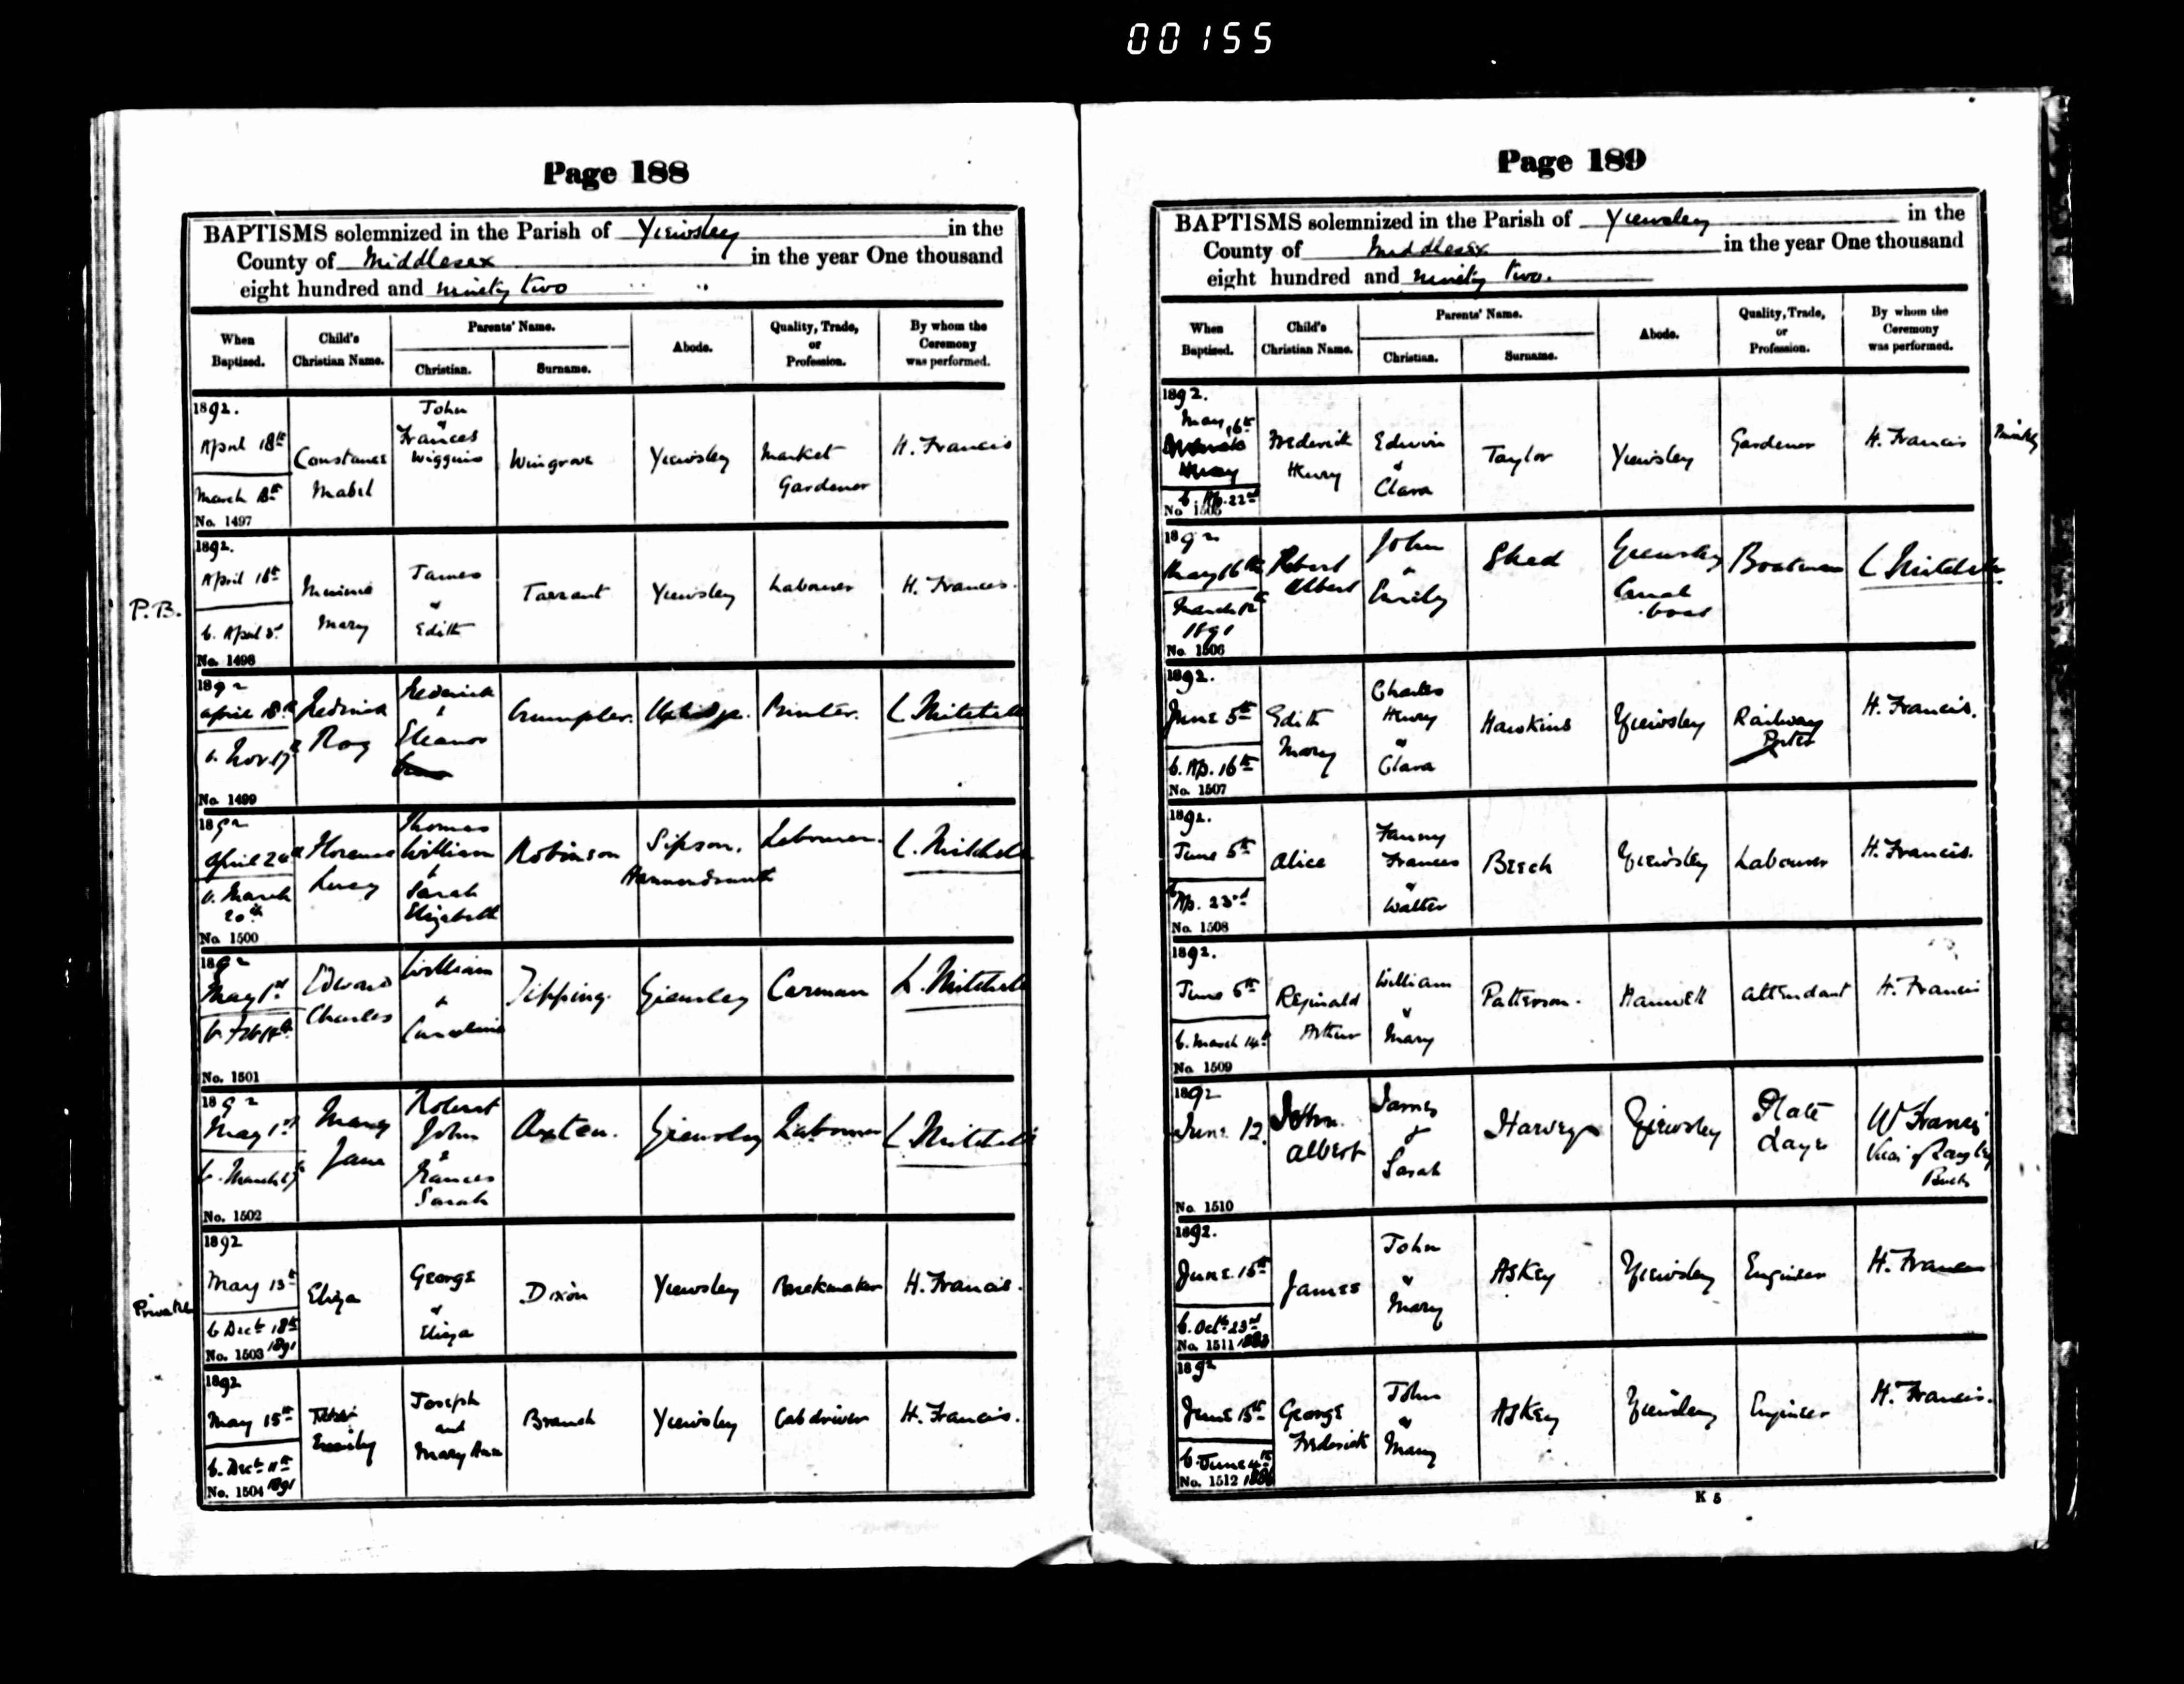 00155
Page 188
BAPTISMS solemnized in the Parish of Yiewsley in the
County of Middlesex in the year One thousand
eight hundred and ninety two
When Baptised.
Child's Christian Name.
Parents' Name.
Christian.
Surname.
Abode.
Quality, Trade, or Profession.
By whom the Ceremony was performed.
1892. April 18th March 18th No. 1497
Constance Mabel
John & Frances Wiggins
Wingrove
Yiewsley
Market Gardener
H. Francis
P.B.
1892. April 18th b. April 3rd No. 1498
Minnie Mary
James & Edith
Tarrant
Yiewsley
Labourer
H. Francis.
1892 April 18th b. Nov. 17th No. 1499
Frederick Roy
Frederick & Eleanor
Crumpler.
Uxbridge.
Printer.
C Mitchell
1892 April 24th b. March 20th No. 1500
Florence Lucy
Thomas William & Sarah Elizabeth
Robinson
Sipson, Harmondsworth
Labourer.
C. Mitchell
1892 May 1st b. Feb No. 1501
Edward Charles
William & Caroline
Tipping.
Yiewsley
Carman
C. Mitchell
1892 May 1st b. March No. 1502
Mary Jane
Robert John & Frances Sarah
Axten.
Yiewsley
Labourer
C Mitchell
Private
1892 May 13th b Dec. 18th 1891 No. 1503
Eliza
George & Eliza
Dixon
Yiewsley
Brickmaker
H. Francis.
1892 May 15th b. Dec. 11th 1891 No. 1504
Emily
Joseph and Mary Ann
Branch
Yiewsley
Cab driver
H. Francis.
Page 189
BAPTISMS solemnized in the Parish of Yiewsley in the
County of Middlesex in the year One thousand
eight hundred and ninety two.
When Baptised.
Child's Christian Name.
Parents' Name.
Christian.
Surname.
Abode.
Quality, Trade, or Profession.
By whom the Ceremony was performed.
1892. May 16th b. Ap. 22nd No. 1505
Frederick Henry
Edwin & Clara
Taylor
Yiewsley
Gardener
H. Francis
1892 May 16th March 12th 1891 No. 1506
Robert Albert
John & Emily
Shed
Yiewsley Canal boat
Boatman
C Mitchell
1892. June 5th b. Ap. 16th No. 1507
Edith Mary
Charles Henry & Clara
Hawkins
Yiewsley
Railway Porter
H. Francis.
1892. June 5th b. Ap. 23rd No. 1508
Alice
Fanny Frances & Walter
Beech
Yiewsley
Labourer
H. Francis.
1892. June 5th b. March 14th No. 1509
Reginald Arthur
William & Mary
Patterson.
Hanwell
Attendant
H. Francis
1892 June 12. No. 1510
John Albert
James & Sarah
Harvey
Yiewsley
Plate Layer
W Francis Vicar of Bucks
1892. June 15th b. Oct. 23rd No. 1511
James
John & Mary
Askey
Yiewsley
Engineer
H. Francis
1892 June 15th b. June No. 1512
George Frederick
John & Mary
Askey
Yiewsley
Engineer
H. Francis.
K 5